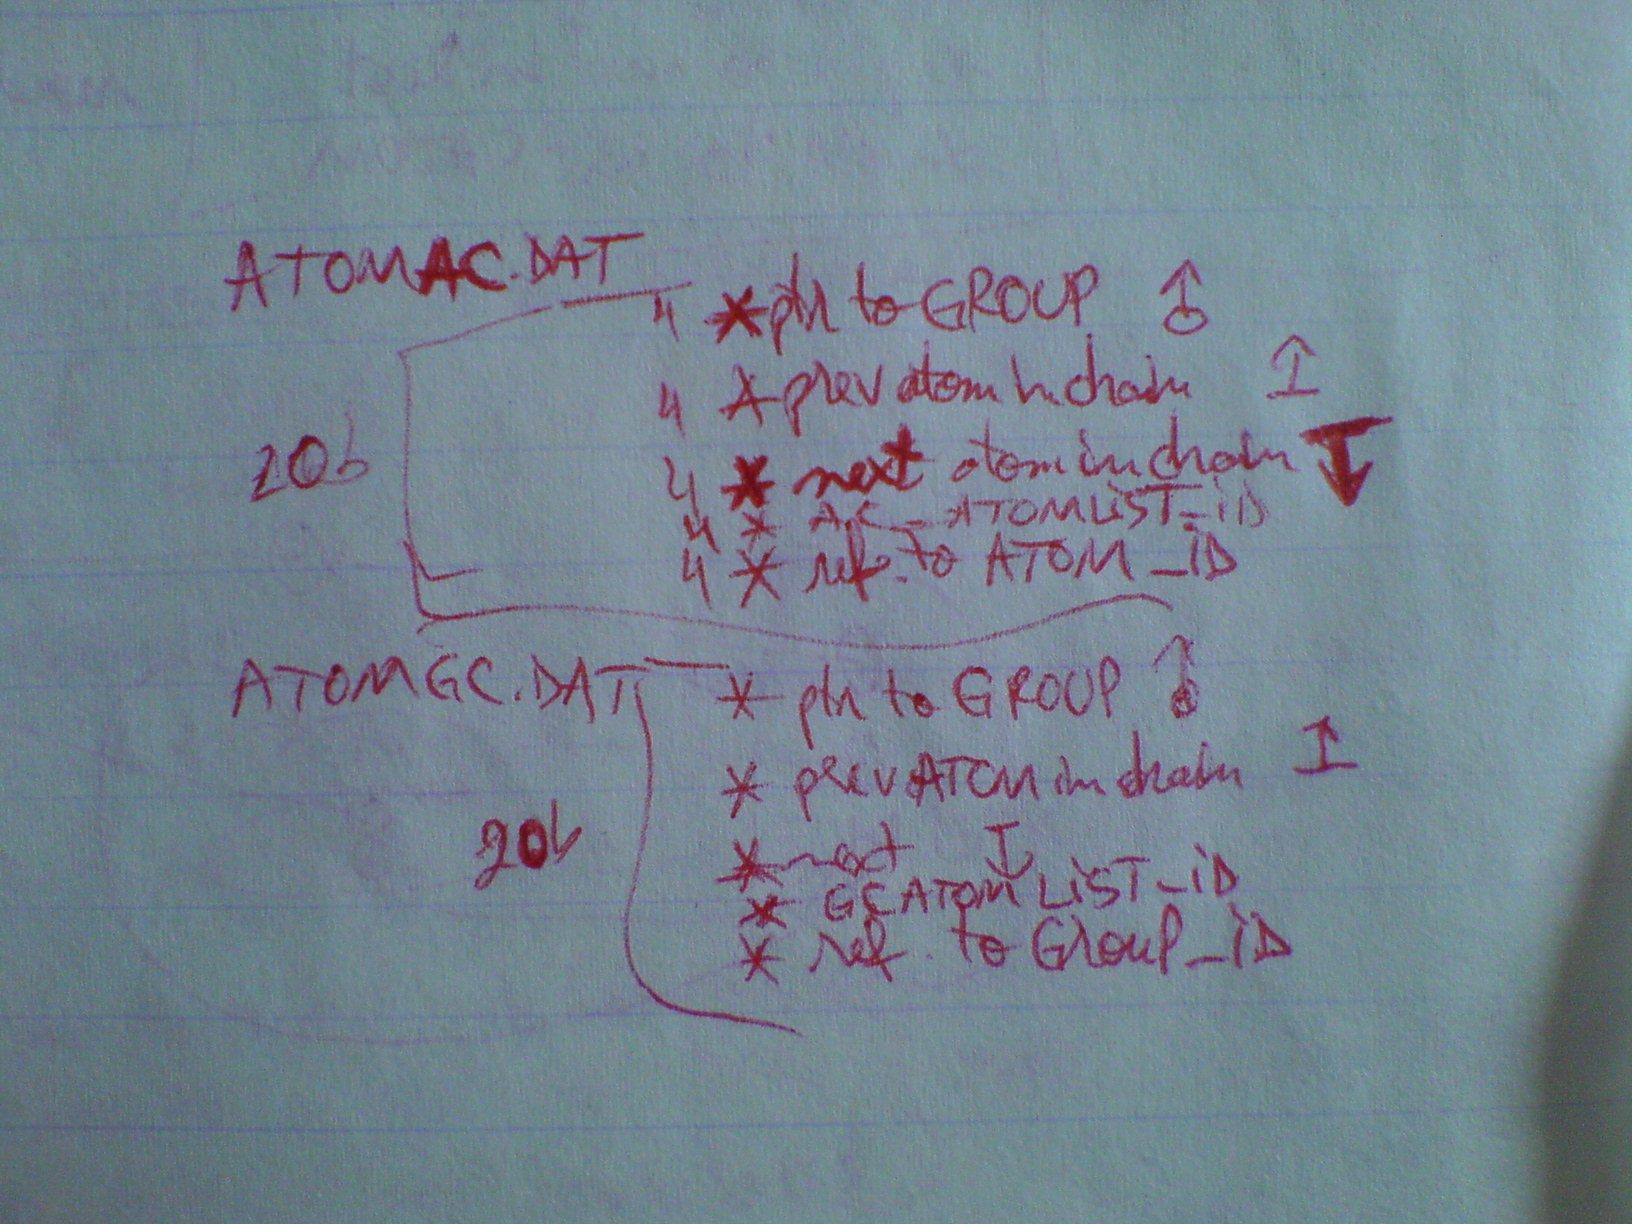 ATOMAC.DAT
4 * ptr to GROUP ↑
4 * prev atom in chain ↑
20b
4 * next atom in chain ↓
4 * AC_ATOMLIST_iD
4 * ref. to ATOM_iD
ATOMGC.DAT
* ptr to GROUP ↑
* prev ATOM in chain ↑
20b
* next ↓
* GCATOMLiST_iD
* ref. to GrouP_iD